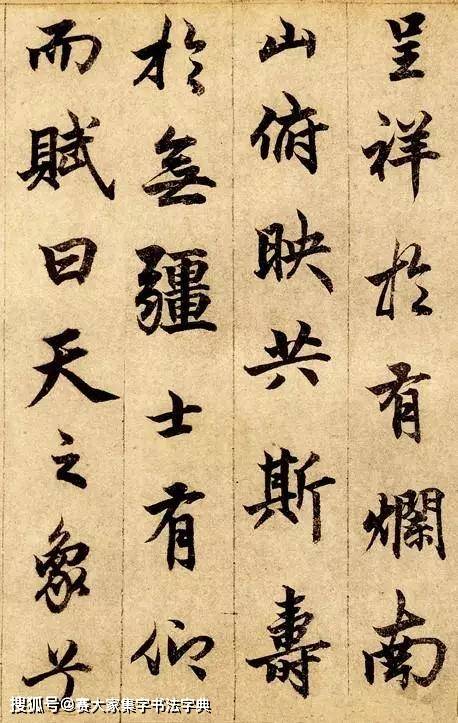 呈祥於有爛南
山俯映共斯壽
於無疆士有仰
而賦曰天之象兮
搜狐号@赛大家集字书法字典